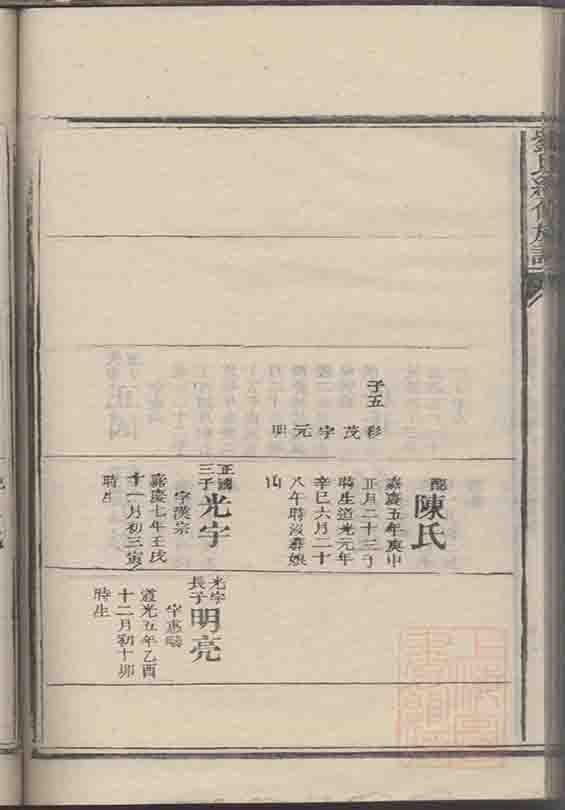 劉氏續修族譜
子五 彩
茂
宇
元
明
配陳氏
嘉慶五年庚申
正月二十三子
時生道光元年
辛巳六月二十
八午時歿葬娘
山
正國
三子光宇
字漢宗
嘉慶七年壬戌
十一月初三寅
時生
光宇
長子明亮
字惠疇
道光五年乙酉
十二月初十卯
時生
上海圖書館藏